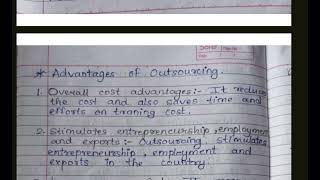 * Advantages of Outsourcing.
1. Overall cost advantages:- It reduces
the cost and also saves time and
efforts on traning cost.
2. Stimulates entrepreneurship, employment
and exports:- Outsourcing stimulates
entrepreneurship, employment and
exports in the country.